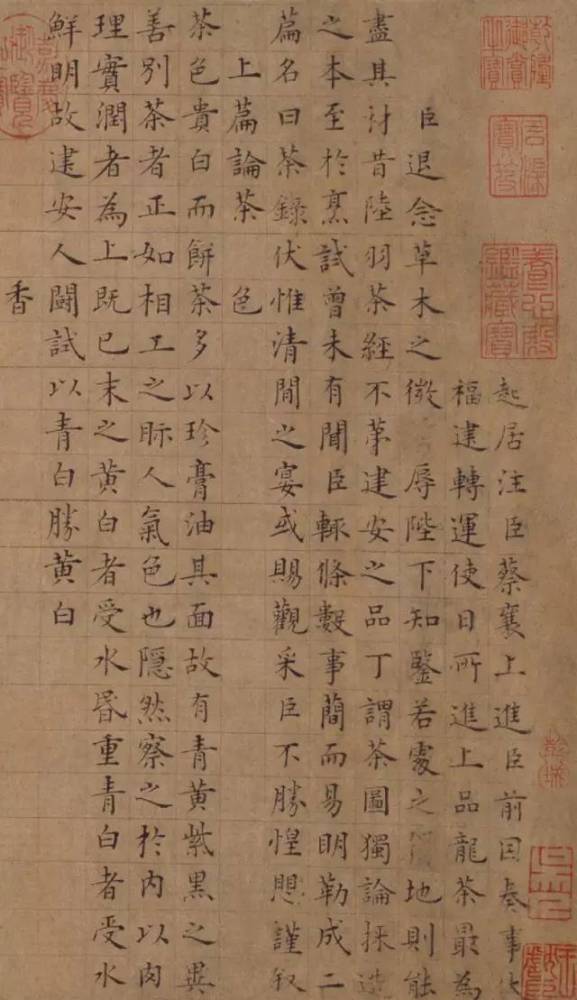 石渠寶笈
養心殿鑑藏寶
起居注臣蔡襄上進臣前因奏事
福建轉運使日所進上品龍茶最為
臣退念草木之微辱陛下知鑒若處之地則能
盡其材昔陸羽茶經不第建安之品丁謂茶圖獨論採造
之本至於烹試曾未有聞臣輒條數事簡而易明勒成二
篇名曰茶錄伏惟清閒之宴或賜觀采臣不勝惶懼謹叙
上篇論茶 色
茶色貴白而餅茶多以珍膏油其面故有青黃紫黑之異
善別茶者正如相工之眎人氣色也隱然察之於內以肉
理實潤者為上既已末之黃白者受水昏重青白者受水
鮮明故建安人鬭試以青白勝黃白
香
嘉慶御覽之寶